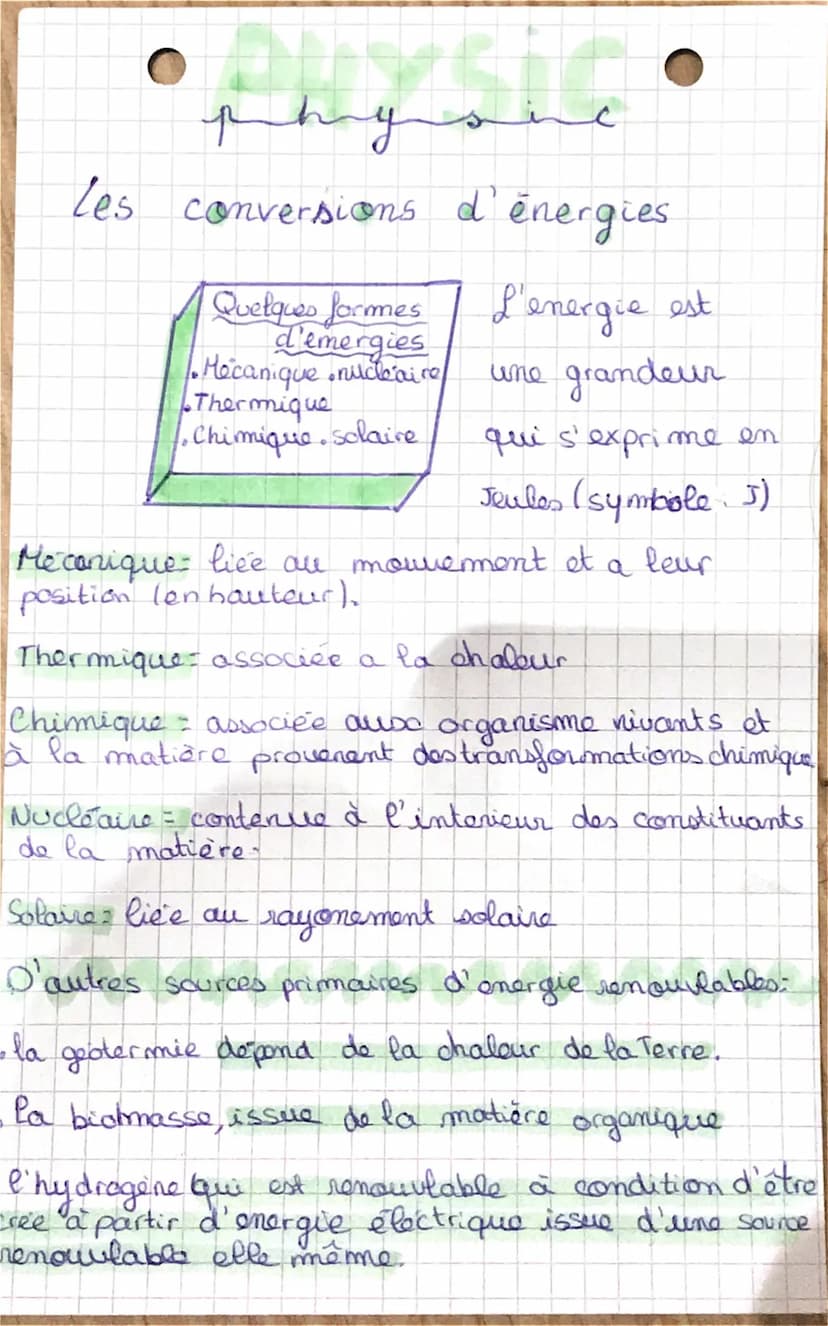 PHYSIC
physic
Les conversions d'énergies
Quelques formes
d'émergies
.Mécanique .nucléaire
.Thermique
.Chimique .solaire
L'energie est
une grandeur
qui s'exprime en
Jeules (symbole : J)
Mécanique= liée au mouvement et a leur
position (en hauteur).
Thermique= associée a la chaleur
Chimique = associée aux organisme vivants et
à la matière provenant des transformations chimique
Nucléaire = contenue à l'interieur des constituants
de la matière.
Solaire= liée au rayonement solaire
D'autres sources primaires d'énergie renouvlables:
.la géotermie dépend de la chaleur de la Terre.
. La biohmasse, issue de la matière organique
l'hydrogène qui est renouvlable à condition d'être
crée a partir d'energie électrique issue d'une source
renouvlable elle même.